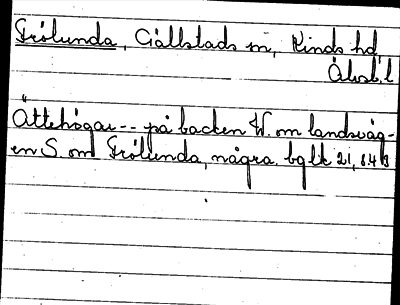 Frölunda, Gällstads sn, Kinds hd,
Älvsb. l
Ättehögar -- på backen W. om landsväg-
en S. om Frölunda, några. bglk 21, s.